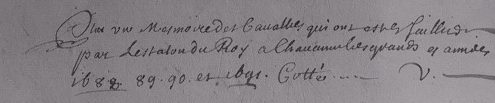 Plus une Mesmoire des Cavalles qui ont estes saillies
par l'estalon du Roy a Chavanne les grands es années
1688 89. 90. et 1691. Cottée V.